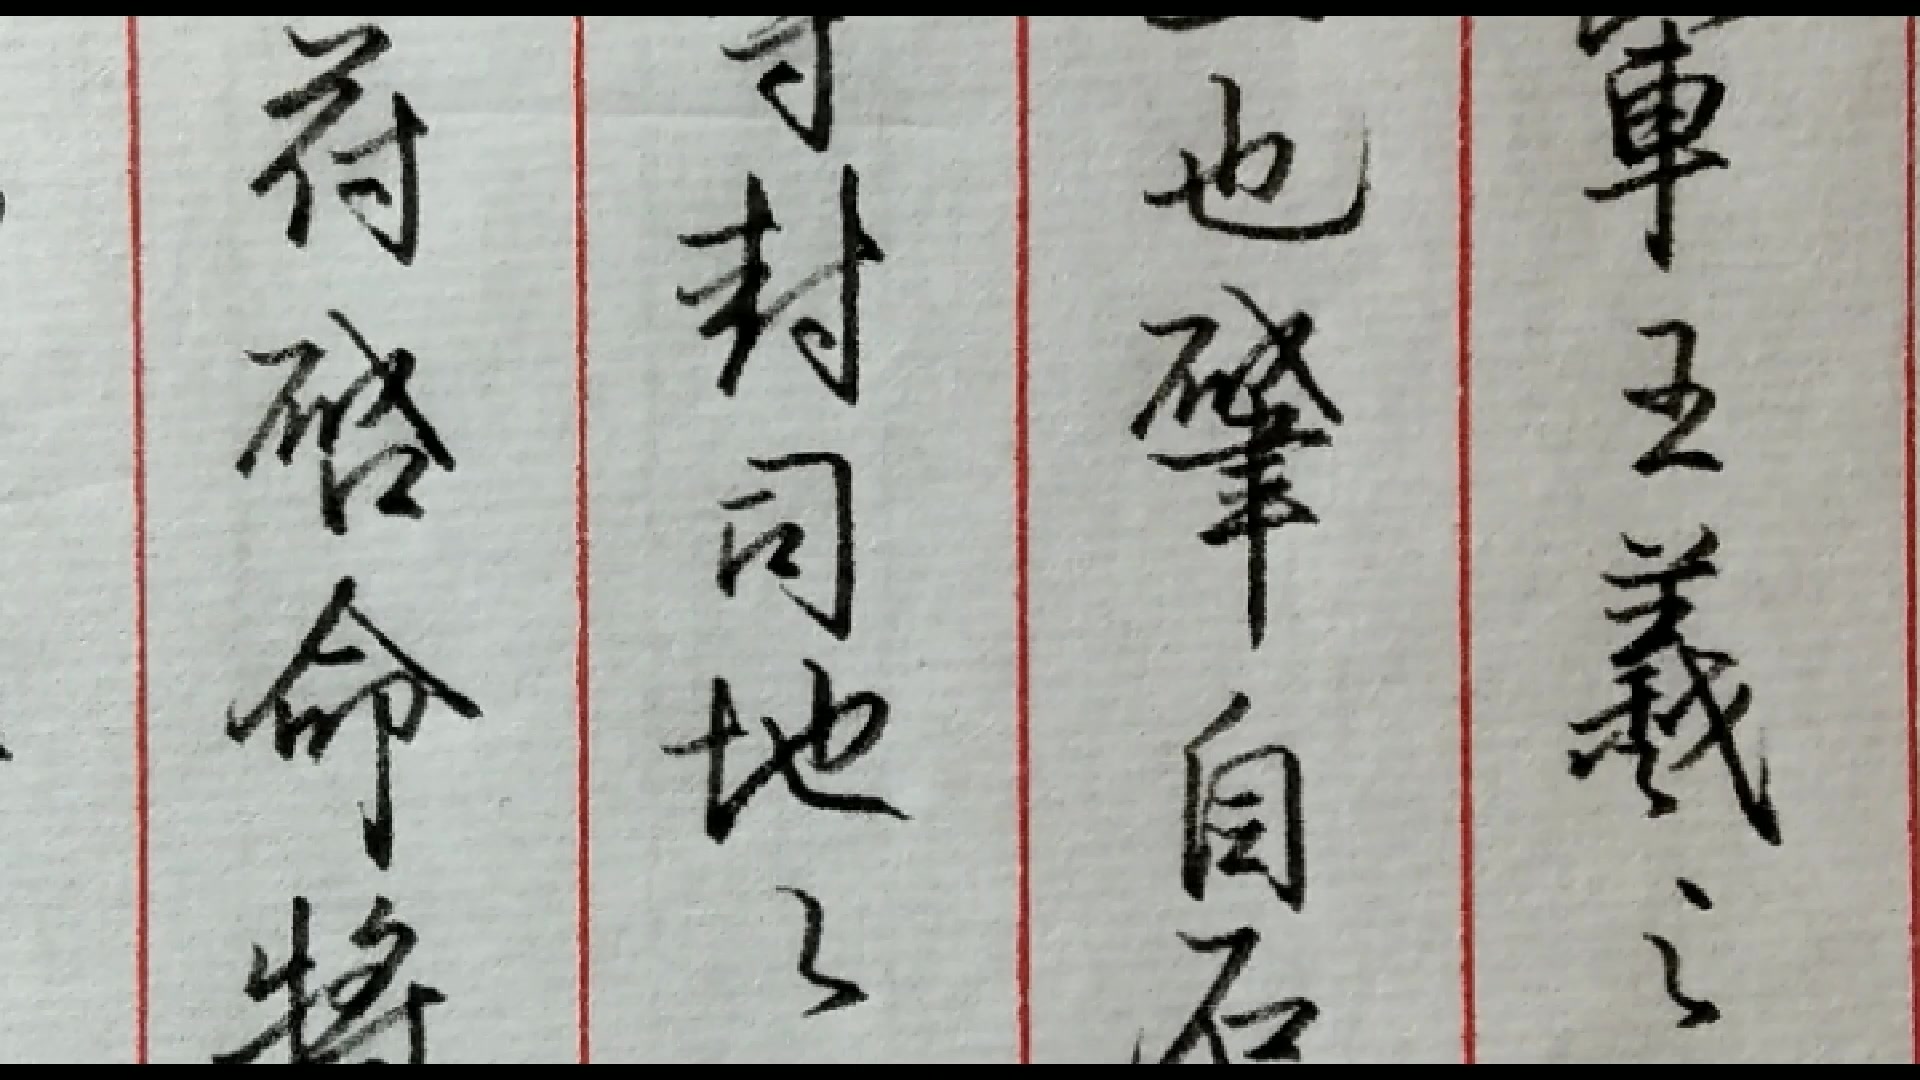 軍王羲之
也肇自石
封司地之
苻啓命將